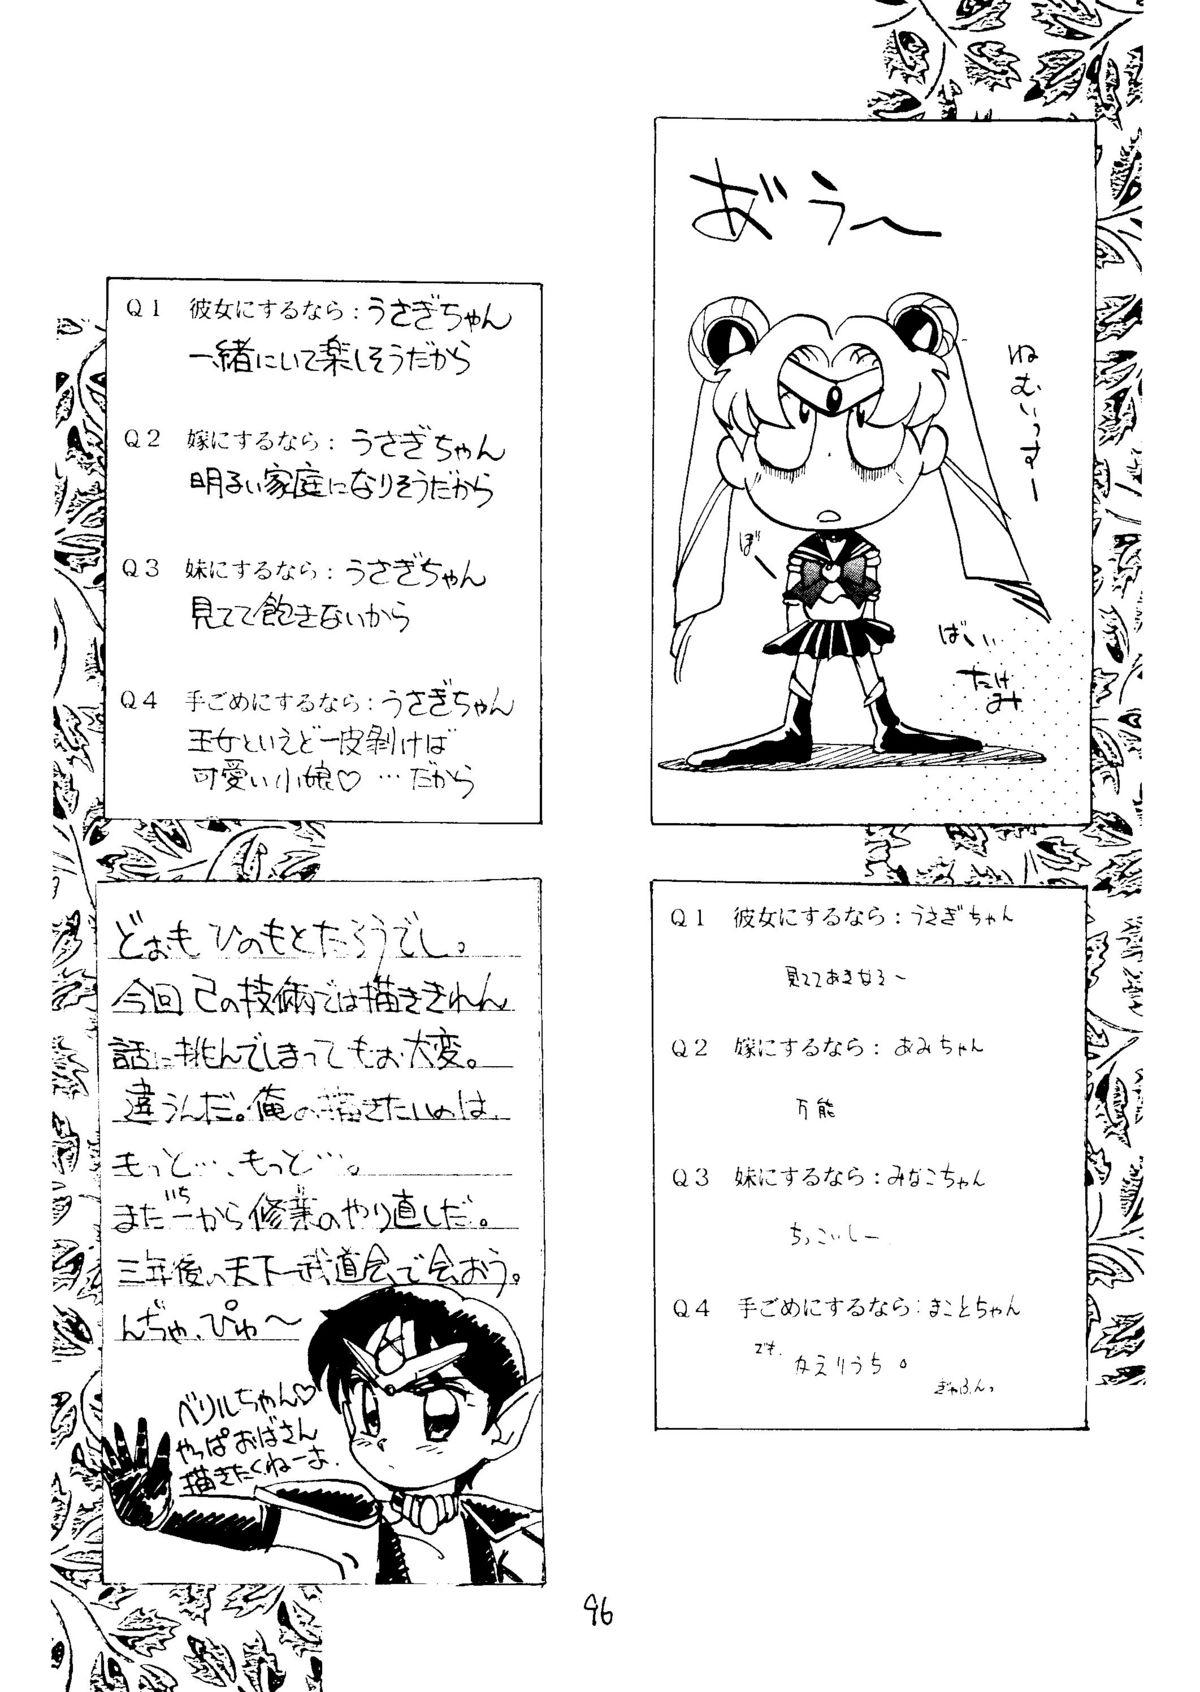 おう〜
ねむいっすー
ぼー
ばーい
たけみ
Q1 彼女にするなら：うさぎちゃん
見ててあきなそ〜
Q2 嫁にするなら：あみちゃん
万能
Q3 妹にするなら：みなこちゃん
ちっこいしー
Q4 手ごめにするなら：まことちゃん
でも、かえりうち。
ぎゃふんっ
Q1 彼女にするなら：うさぎちゃん
一緒にいて楽しそうだから
Q2 嫁にするなら：うさぎちゃん
明るい家庭になりそうだから
Q3 妹にするなら：うさぎちゃん
見てて飽きないから
Q4 手ごめにするなら：うさぎちゃん
王女といえど一皮剥けば
可愛い小娘♡…だから
どぉも ひのもとたろうでし。
今回 己の技術では描ききれん
話に挑んでしまって もぉ大変。
違うんだ。俺の描きたいのは
もっと…、もっと…。
まだ一から修業のやり直しだ。
いち
三年後の天下一武道会で会おう。
んぢゃ、ぴゅ〜
ベリルちゃん♡
やっぱおばさん
描きたくねーよ.
96